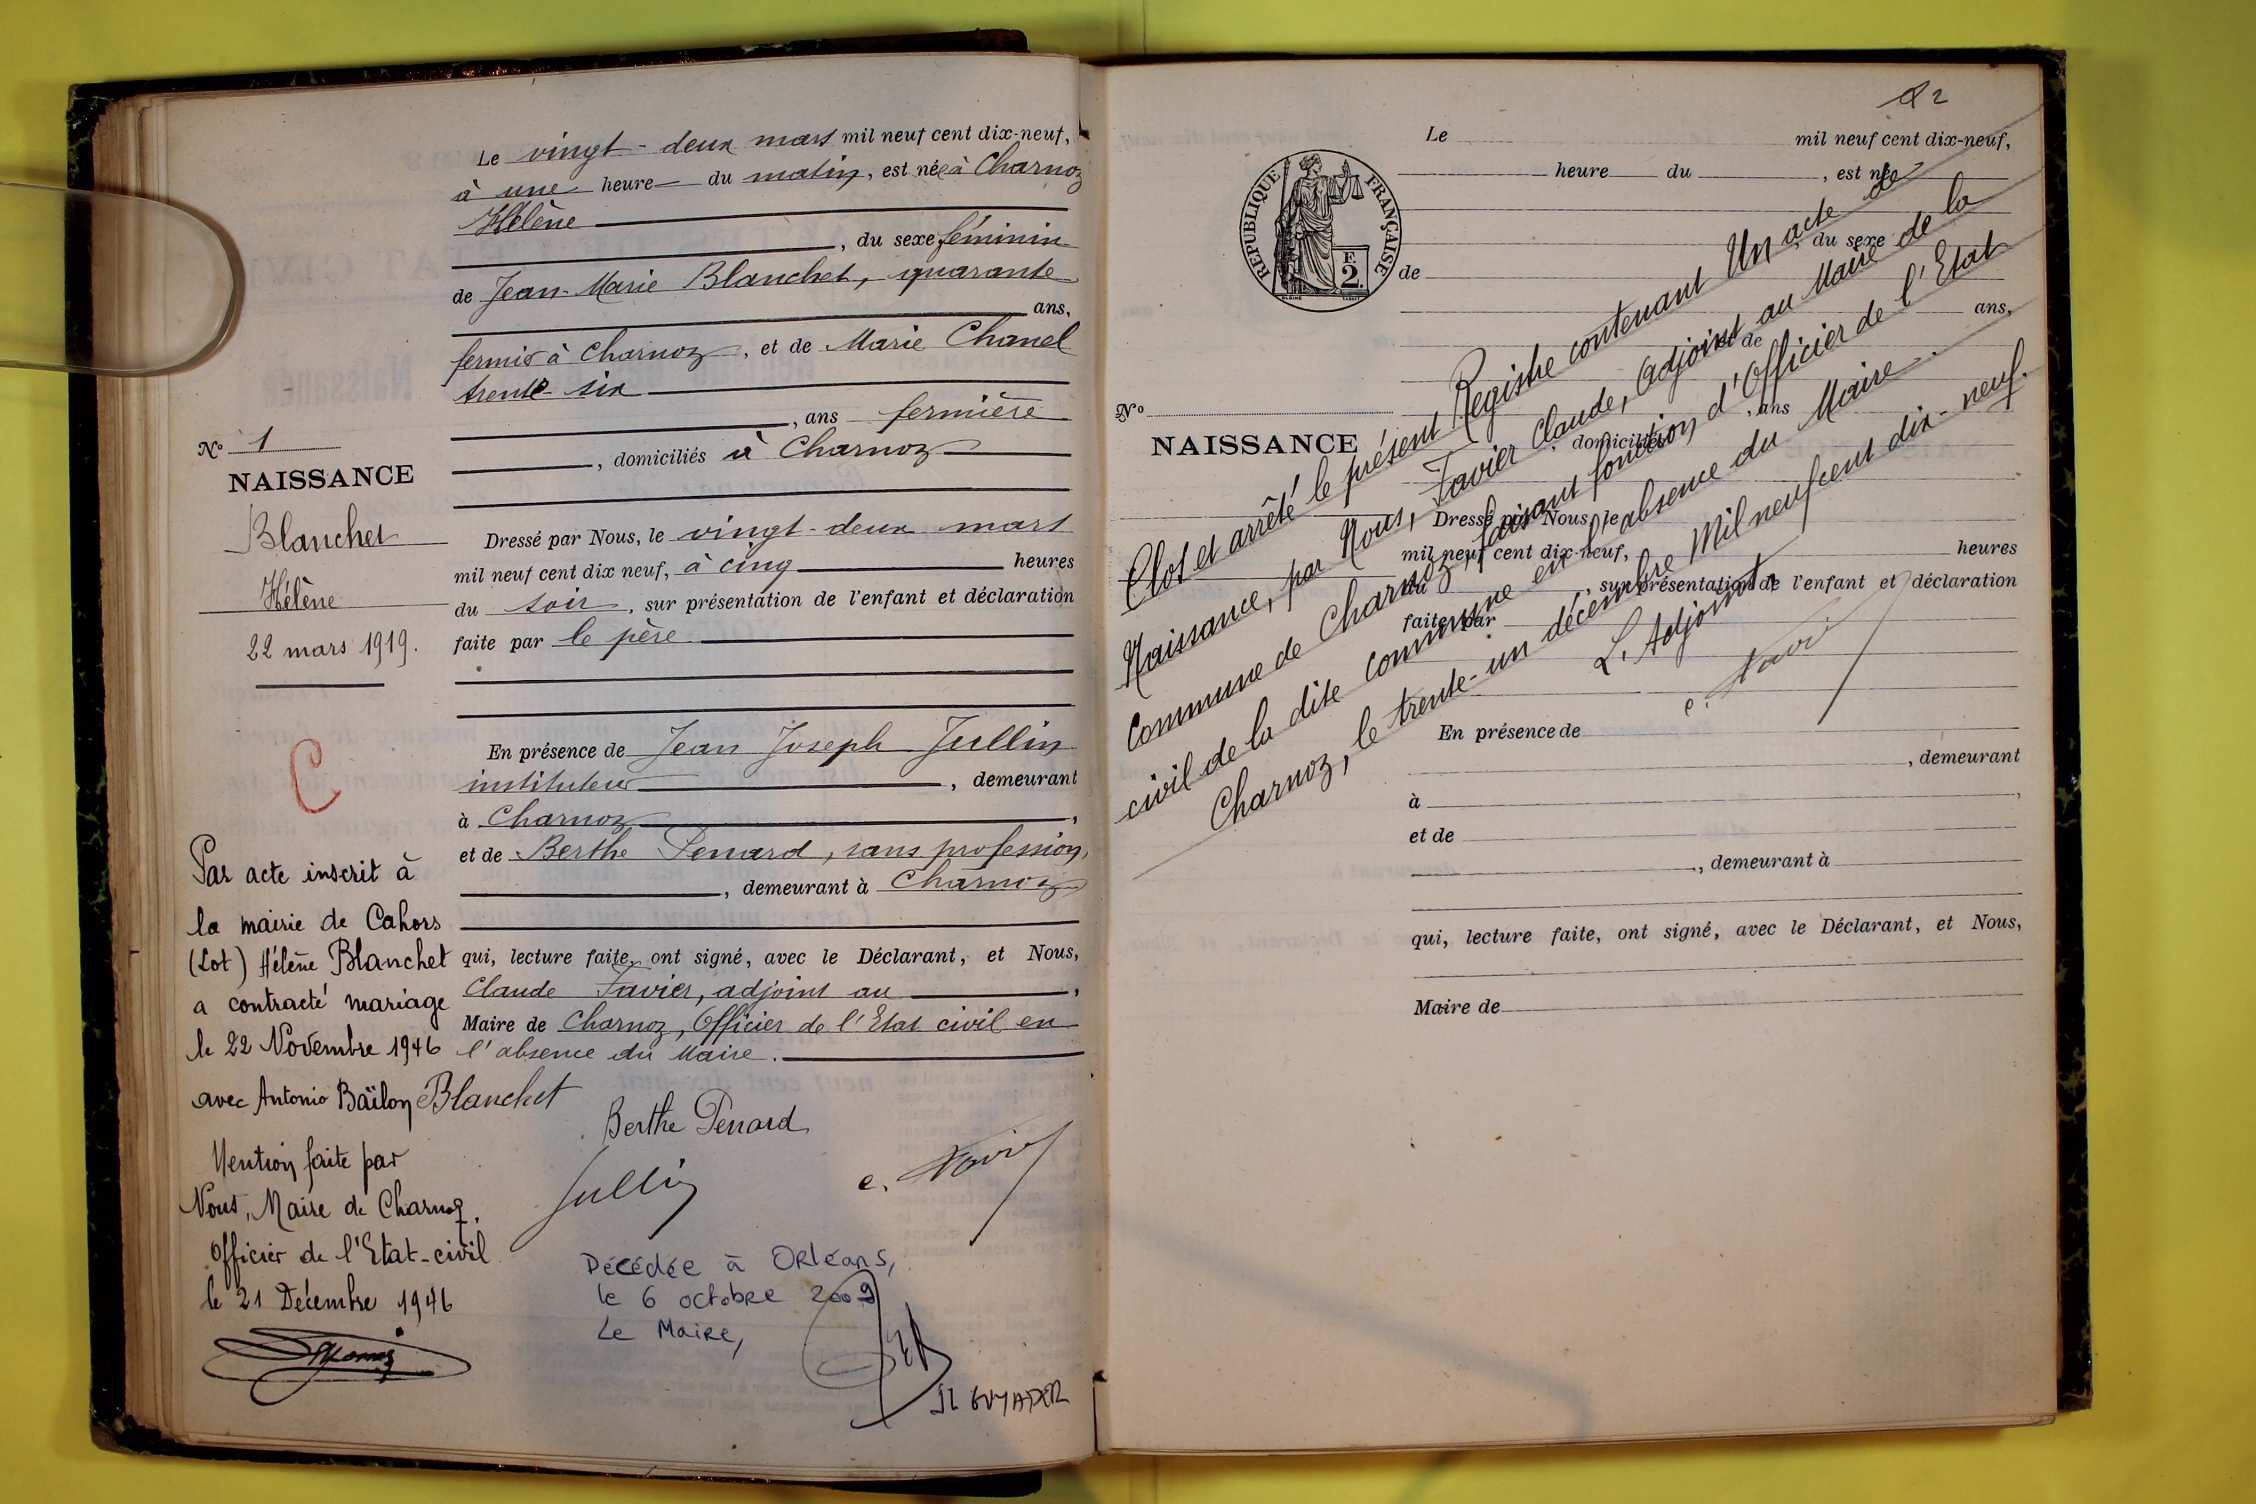 Le vingt-deux mars mil neuf cent dix-neuf,
à une heure du matin, est née à Charnoz
Hélène
, du sexe féminin
de Jean-Marie Blanchet, quarante
ans,
fermier à Charnoz, et de Marie Chanel
trente-six
, ans fermière
, domiciliés à Charnoz
N° 1
NAISSANCE
Blanchet
Hélène
22 mars 1919.
Dressé par Nous, le vingt-deux mars
mil neuf cent dix neuf, à cinq heures
du soir, sur présentation de l'enfant et déclaration
faite par le père
En présence de Jean Joseph Jullin
instituteur, demeurant
à Charnoz,
et de Berthe Penard, sans profession,
, demeurant à Charnoz
qui, lecture faite, ont signé, avec le Déclarant, et Nous,
Claude Favier, adjoint au,
Maire de Charnoz, Officier de l'Etat civil en
l'absence du Maire.
Blanchet
Berthe Penard
Jullin
C. Favier
C
Par acte inscrit à
la mairie de Cahors
(Lot) Hélène Blanchet
a contracté mariage
le 22 Novembre 1946
avec Antonio Baïlon
Mention faite par
Nous, Maire de Charnoz,
Officier de l'Etat-civil
le 21 Décembre 1946
Décédée à ORLéans,
le 6 octobre 2009
Le Maire,
JL GUYADER
2
REPUBLIQUE FRANÇAISE
F.
2.
Le mil neuf cent dix-neuf,
heure du , est né
, du sexe
de
ans,
et de
N°
, ans
NAISSANCE
, domiciliés
Dressé par Nous, le
mil neuf cent dix-neuf, heures
du , sur présentation de l'enfant et déclaration
faite par
En présence de
, demeurant
à ,
et de
, demeurant à
qui, lecture faite, ont signé, avec le Déclarant, et Nous,
Maire de
Clos et arrêté le présent Registre contenant Un acte de
Naissance, par Nous, Favier Claude, Adjoint au Maire de la
Commune de Charnoz, faisant fonction d'Officier de l'Etat
civil de la dite commune en l'absence du Maire.
Charnoz, le trente-un décembre Mil neuf cent dix-neuf.
L'Adjoint,
C. Favier